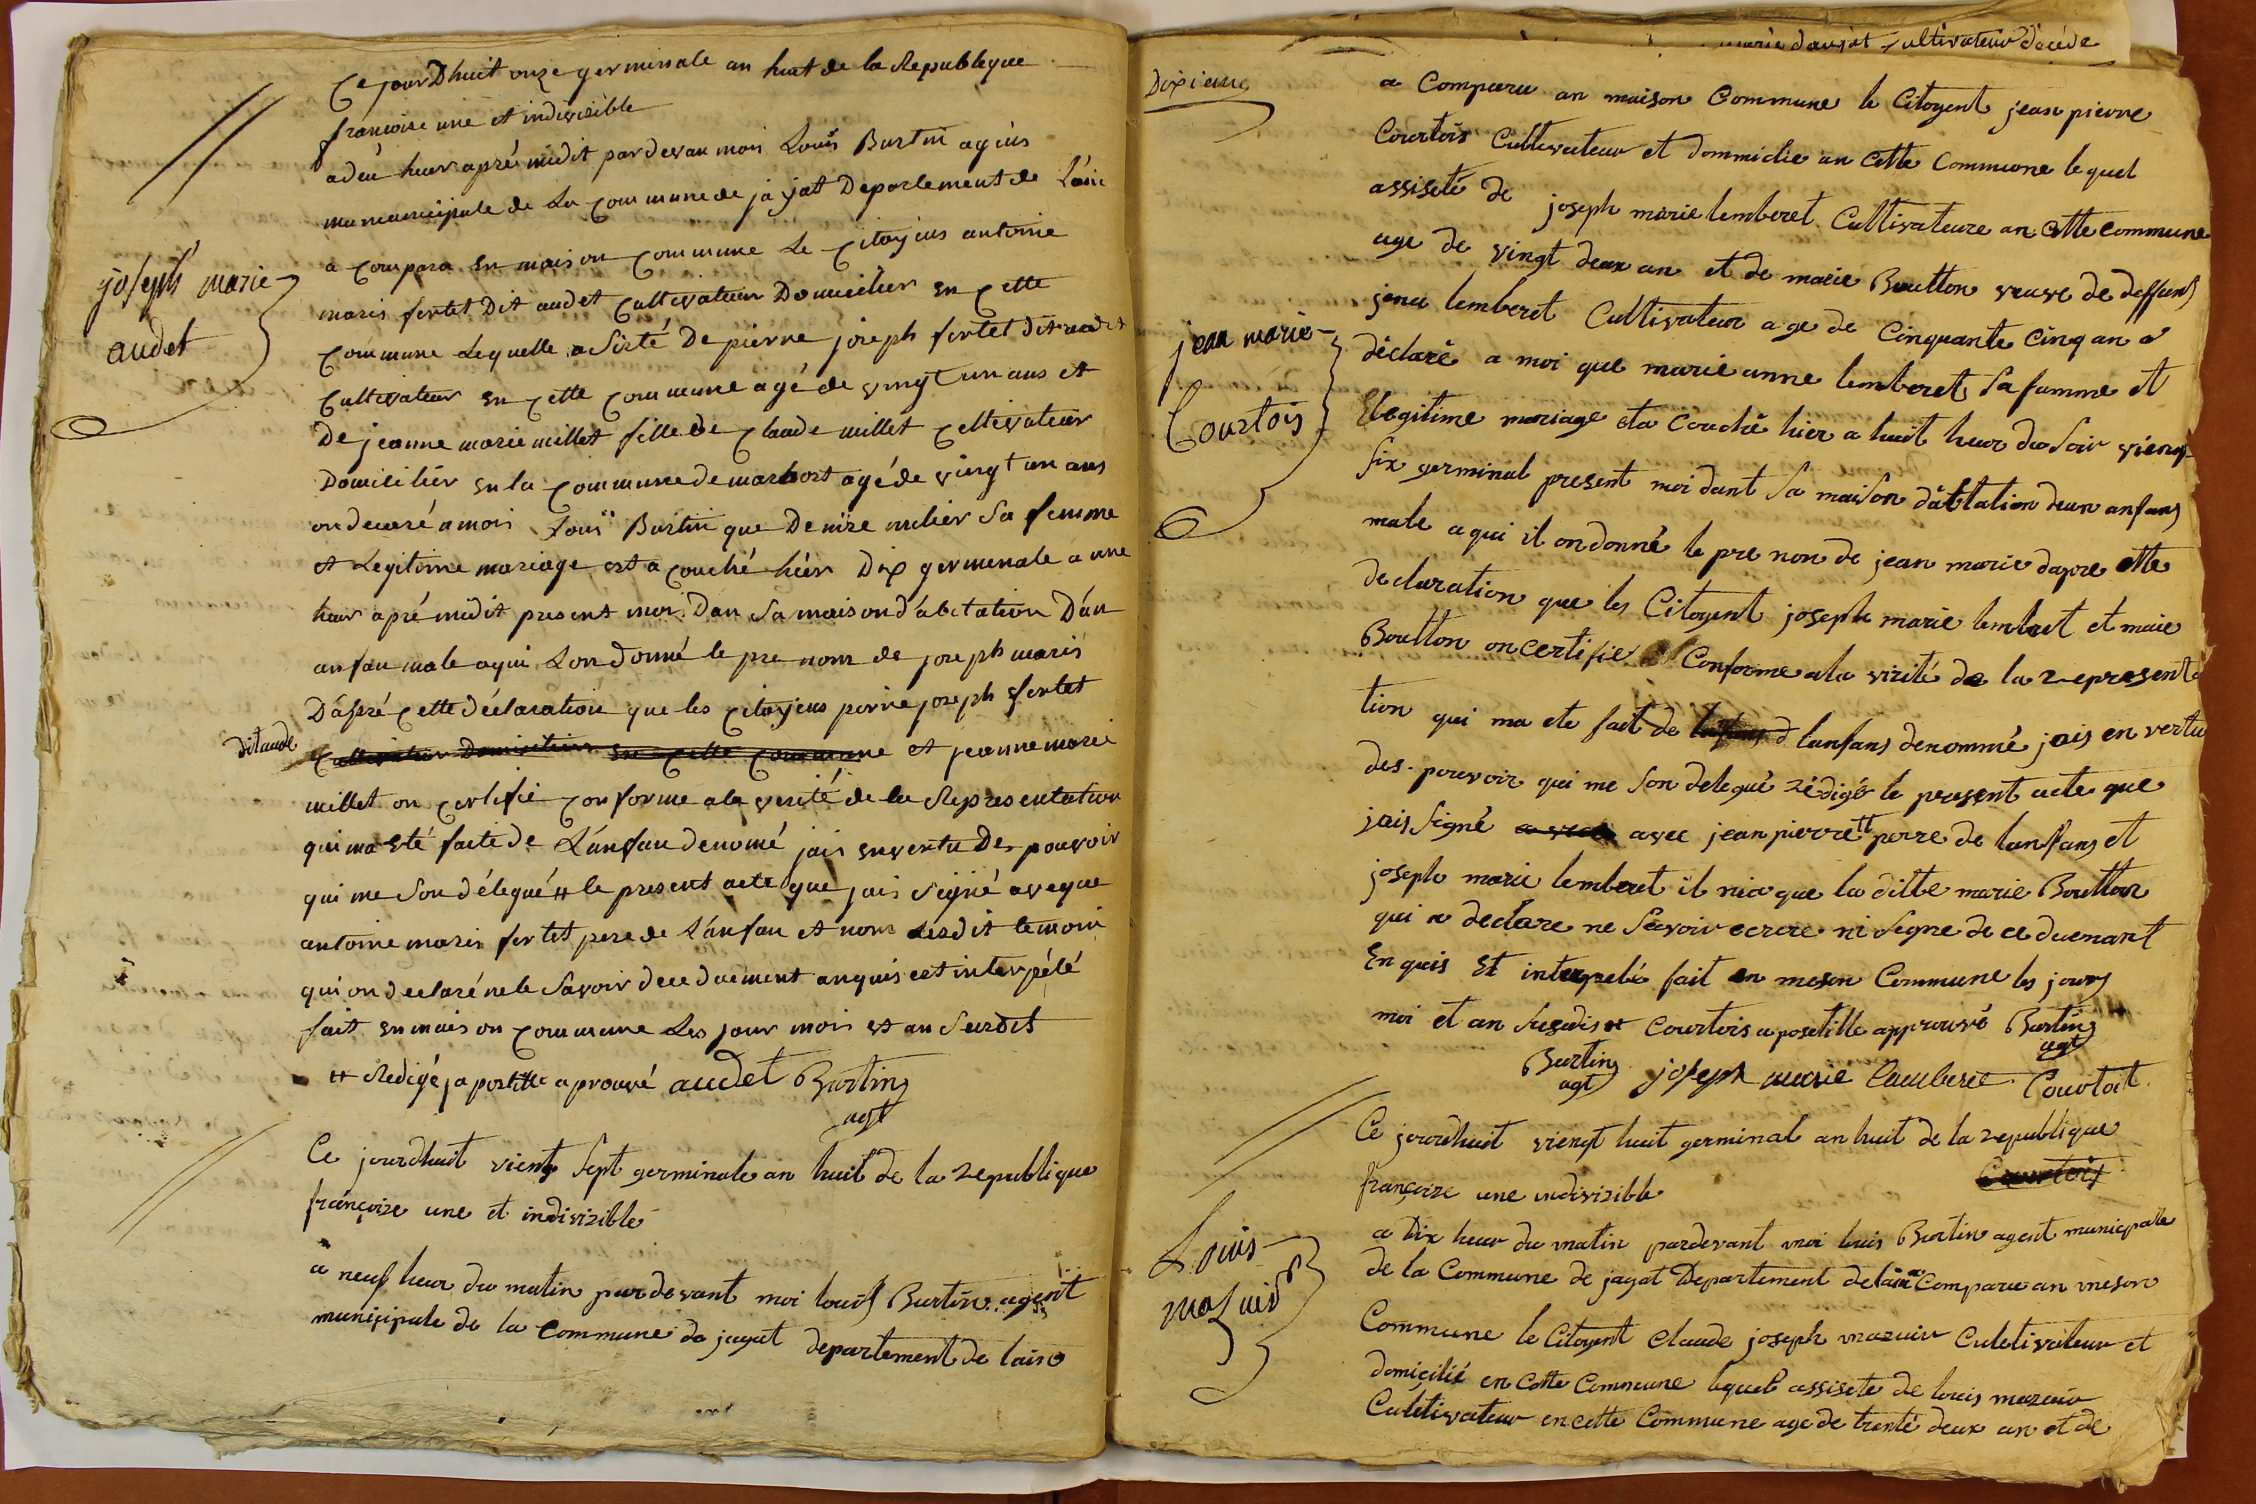 Ce jourDhuit onze germinale an huit de la Republeque
françoise une et indivizible
a deu heur apré midit pardevan moi Louis Burtin agens
munancipale de La Commune de jayat Deparlement de L'ain
a Compara en maison Commune Le Citoyens antoine
joseph marie
audet
maris fertet Dit audet Cultivateur Domicilier en Cette
Commune Lequelle asisté De pierre joseph fertet dit audet
Cultivateur en Cette Commune agé de vingt un ans et
De jeanne marie millet fille de Claude millet Celtivateur
Domicilier en la Commune de marbost agé de vingt un ans
on decaré a moi Loui Burtin que Denize sa femme
et Legitome mariage et a Couché hiér Dix germenale a une
heur apré midit present moi Dan Sa maison d'abitation D'un
anfan male a qui L'on donné le pre nom de joseph maris
D'apré Cette déclaration que les Citoyens perrie joseph fertet
dit aude
Cultivateur Domicilier en Cette Commune et jeanne marie
millet on Certifié Conforme a la verité de la Representation
qui ma eté faite de L'anfau denomé jais en vertu Des pouvoir
qui me Son délegué # le present acte que jais Signé aveque
antoine maris fertet pere de L'anfau et nom Lesdit temoin
qui on declaré ne le Savoir de ce duement anquis et interpélé
fait en maison Commune Les jour moi et an Surdit
# Redigé ja postille aprouvé audet Burtin
agt
Ce jourdhuit vient Sept germinale an huit de la Republique
françoize une et indivizible
a neuf heur du matin pardevant moi louis Burtin agent
municipale de la Commune de jayat departement de lain
marie dauját Cultivateur décéde
Dixieme
a Comparu an maison Commune le Citoyent jean pierre
Courtois Cultivateur et dommiclie an Cette Commune lequel
assisté de joseph marie lemberet Cultivateure an Cette Commune
age de vingt deux an et de marie Boutton veuve de deffun
jean lemberet Cultivateur age de Cinquante Cinq an a
jean marie
Courtois
déclaré a moi que marie anne lemberet Sa famme et
Elegitime mariage eta Couché hier a huit heur du Soir vieng
Six germinal present moi dant Sa maison dabtation deun anfans
male a qui il on donné le pre non de jean marie dapre Cette
declaration que les Citoyent joseph marie lembret et marie
Boutton on certifie Conforme a la virité de la representa
tion qui ma ete fait de lanfans denommé jais en vertu
des pouvoir qui me Son delegué rédigé le present acte que
jais Signé avec jean pierre # perre de lanfans et
joseph marie lemberet il nia que la ditte marie Boutton
qui a declare ne Savoir ecrere ni Signe de ce duemant
En quis Et interpelé fait en meson Commune les jours
moi et an Susdis # Courtois a posetille approuvé Burtin
agt
Burtin
agt
joseph marie lamberet Courtoit
Ce jourdhuit viengt huit germinal an huit de la republique
Courtois
françoize une indivizible
a Dix heur du matin pardevant moi luis Burtin agent municpalle
de la Commune de jayat Departement de lain a Comparu an meson
Louis
mazuir
Commune le Citoyent Claude joseph mazuir Culetivateur et
domicilié en Cette Commune lequel assiseté de louis mazuir
Culetivateur en cette Commune age de trente deux an et de